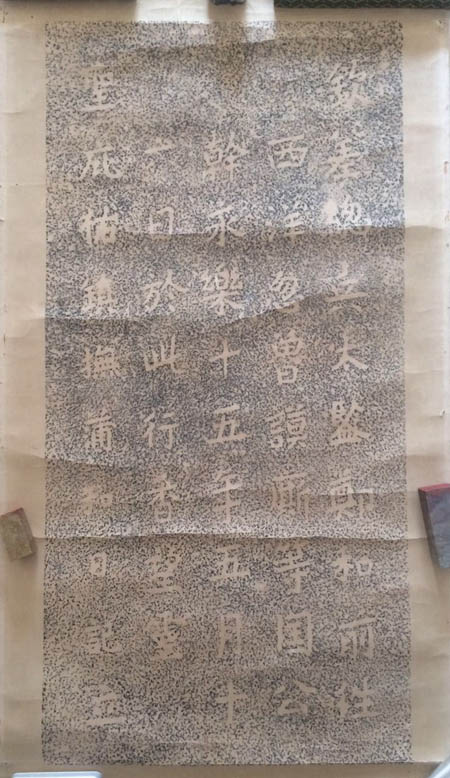 欽差總兵太監鄭和前往
西洋忽魯謨廝等国公
幹永樂十五年五月十
六日於此行香望靈
聖庇祐鎮撫蒲和日記立